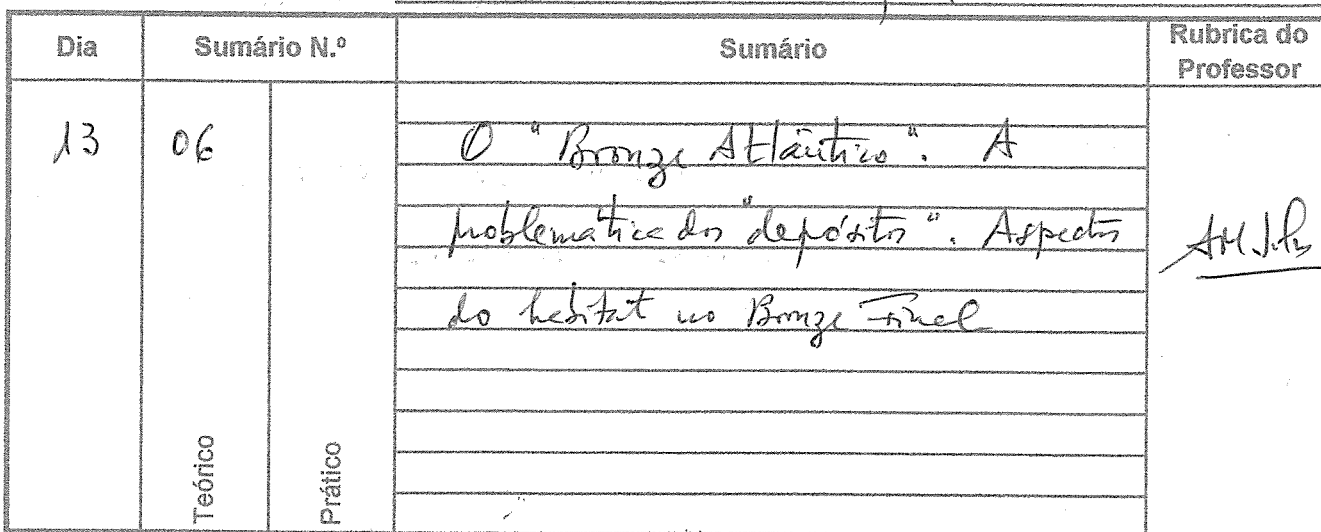 Dia Sumário N.º Sumário Rubrica do Professor
13 06 O "Bronze Atlântico". A
problemática dos "depósitos". Aspectos
do habitat no Bronze Final
Teórico Prático